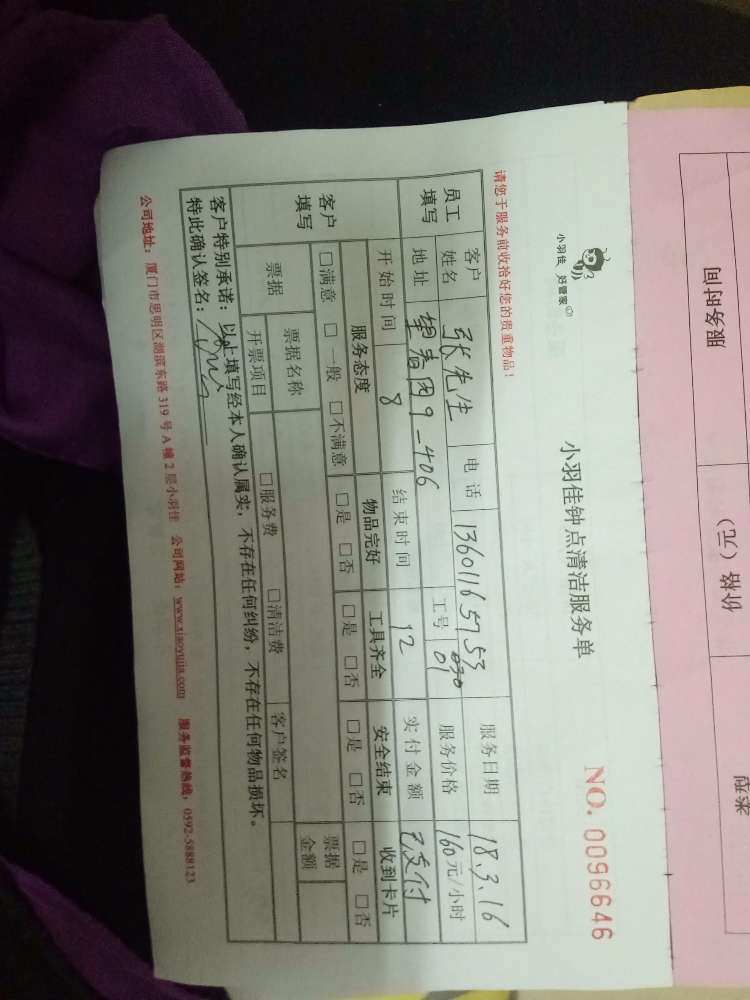 服务时间
价格（元）
小羽佳 好管家
小羽佳钟点清洁服务单
NO. 0096646
请您于服务前收拾好您的贵重物品！
员工填写
客户姓名 张先生 电话 13601165753 服务日期 18.3.16
地址 9-406 工号 01 服务价格 160元/小时
开始时间 8 结束时间 12 实付金额 已支付
客户填写
服务态度 物品完好 工具齐全 安全结束 收到卡片
□满意 □一般 □不满意 □是 □否 □是 □否 □是 □否 □是 □否
票据 票据名称 客户签名 票据金额
开票项目 □服务费 □清洁费
客户特别承诺：以上填写经本人确认属实，不存在任何纠纷，不存在任何物品损坏。
特此确认签名：
公司地址：厦门市思明区湖滨东路 319 号 A 幢 2 层小羽佳 公司网站：www.xiaoyujia.com 服务监督热线：0592-5888123